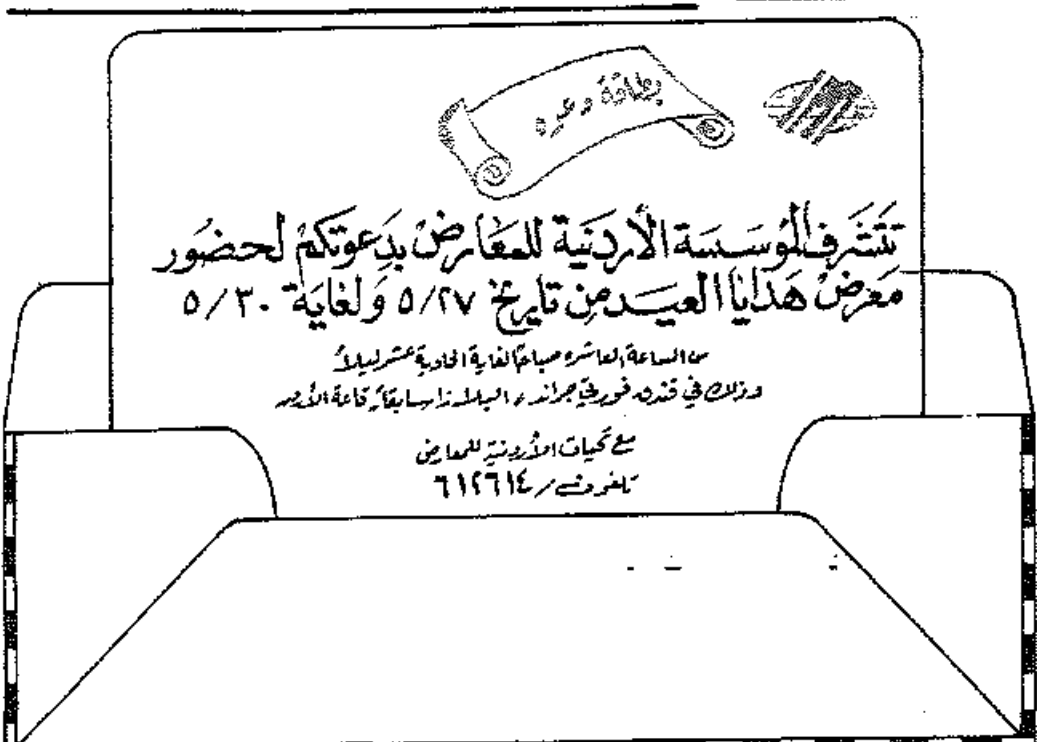 بطاقة دعوه
تتشرف المؤسسة الأردنية للمعارض بدعوتكم لحضور
معرض هدايا العيد من تاريخ ٥/٢٧ ولغاية ٥/٣٠
من الساعة العاشره صباحاً لغاية الحادية عشر ليلاً
وذلك في فندق فورتي جراند «البلازا سابقاً» قاعة الأردن
مع تحيات الأردنية للمعارض
تلفون / ٦١٢٦١٤